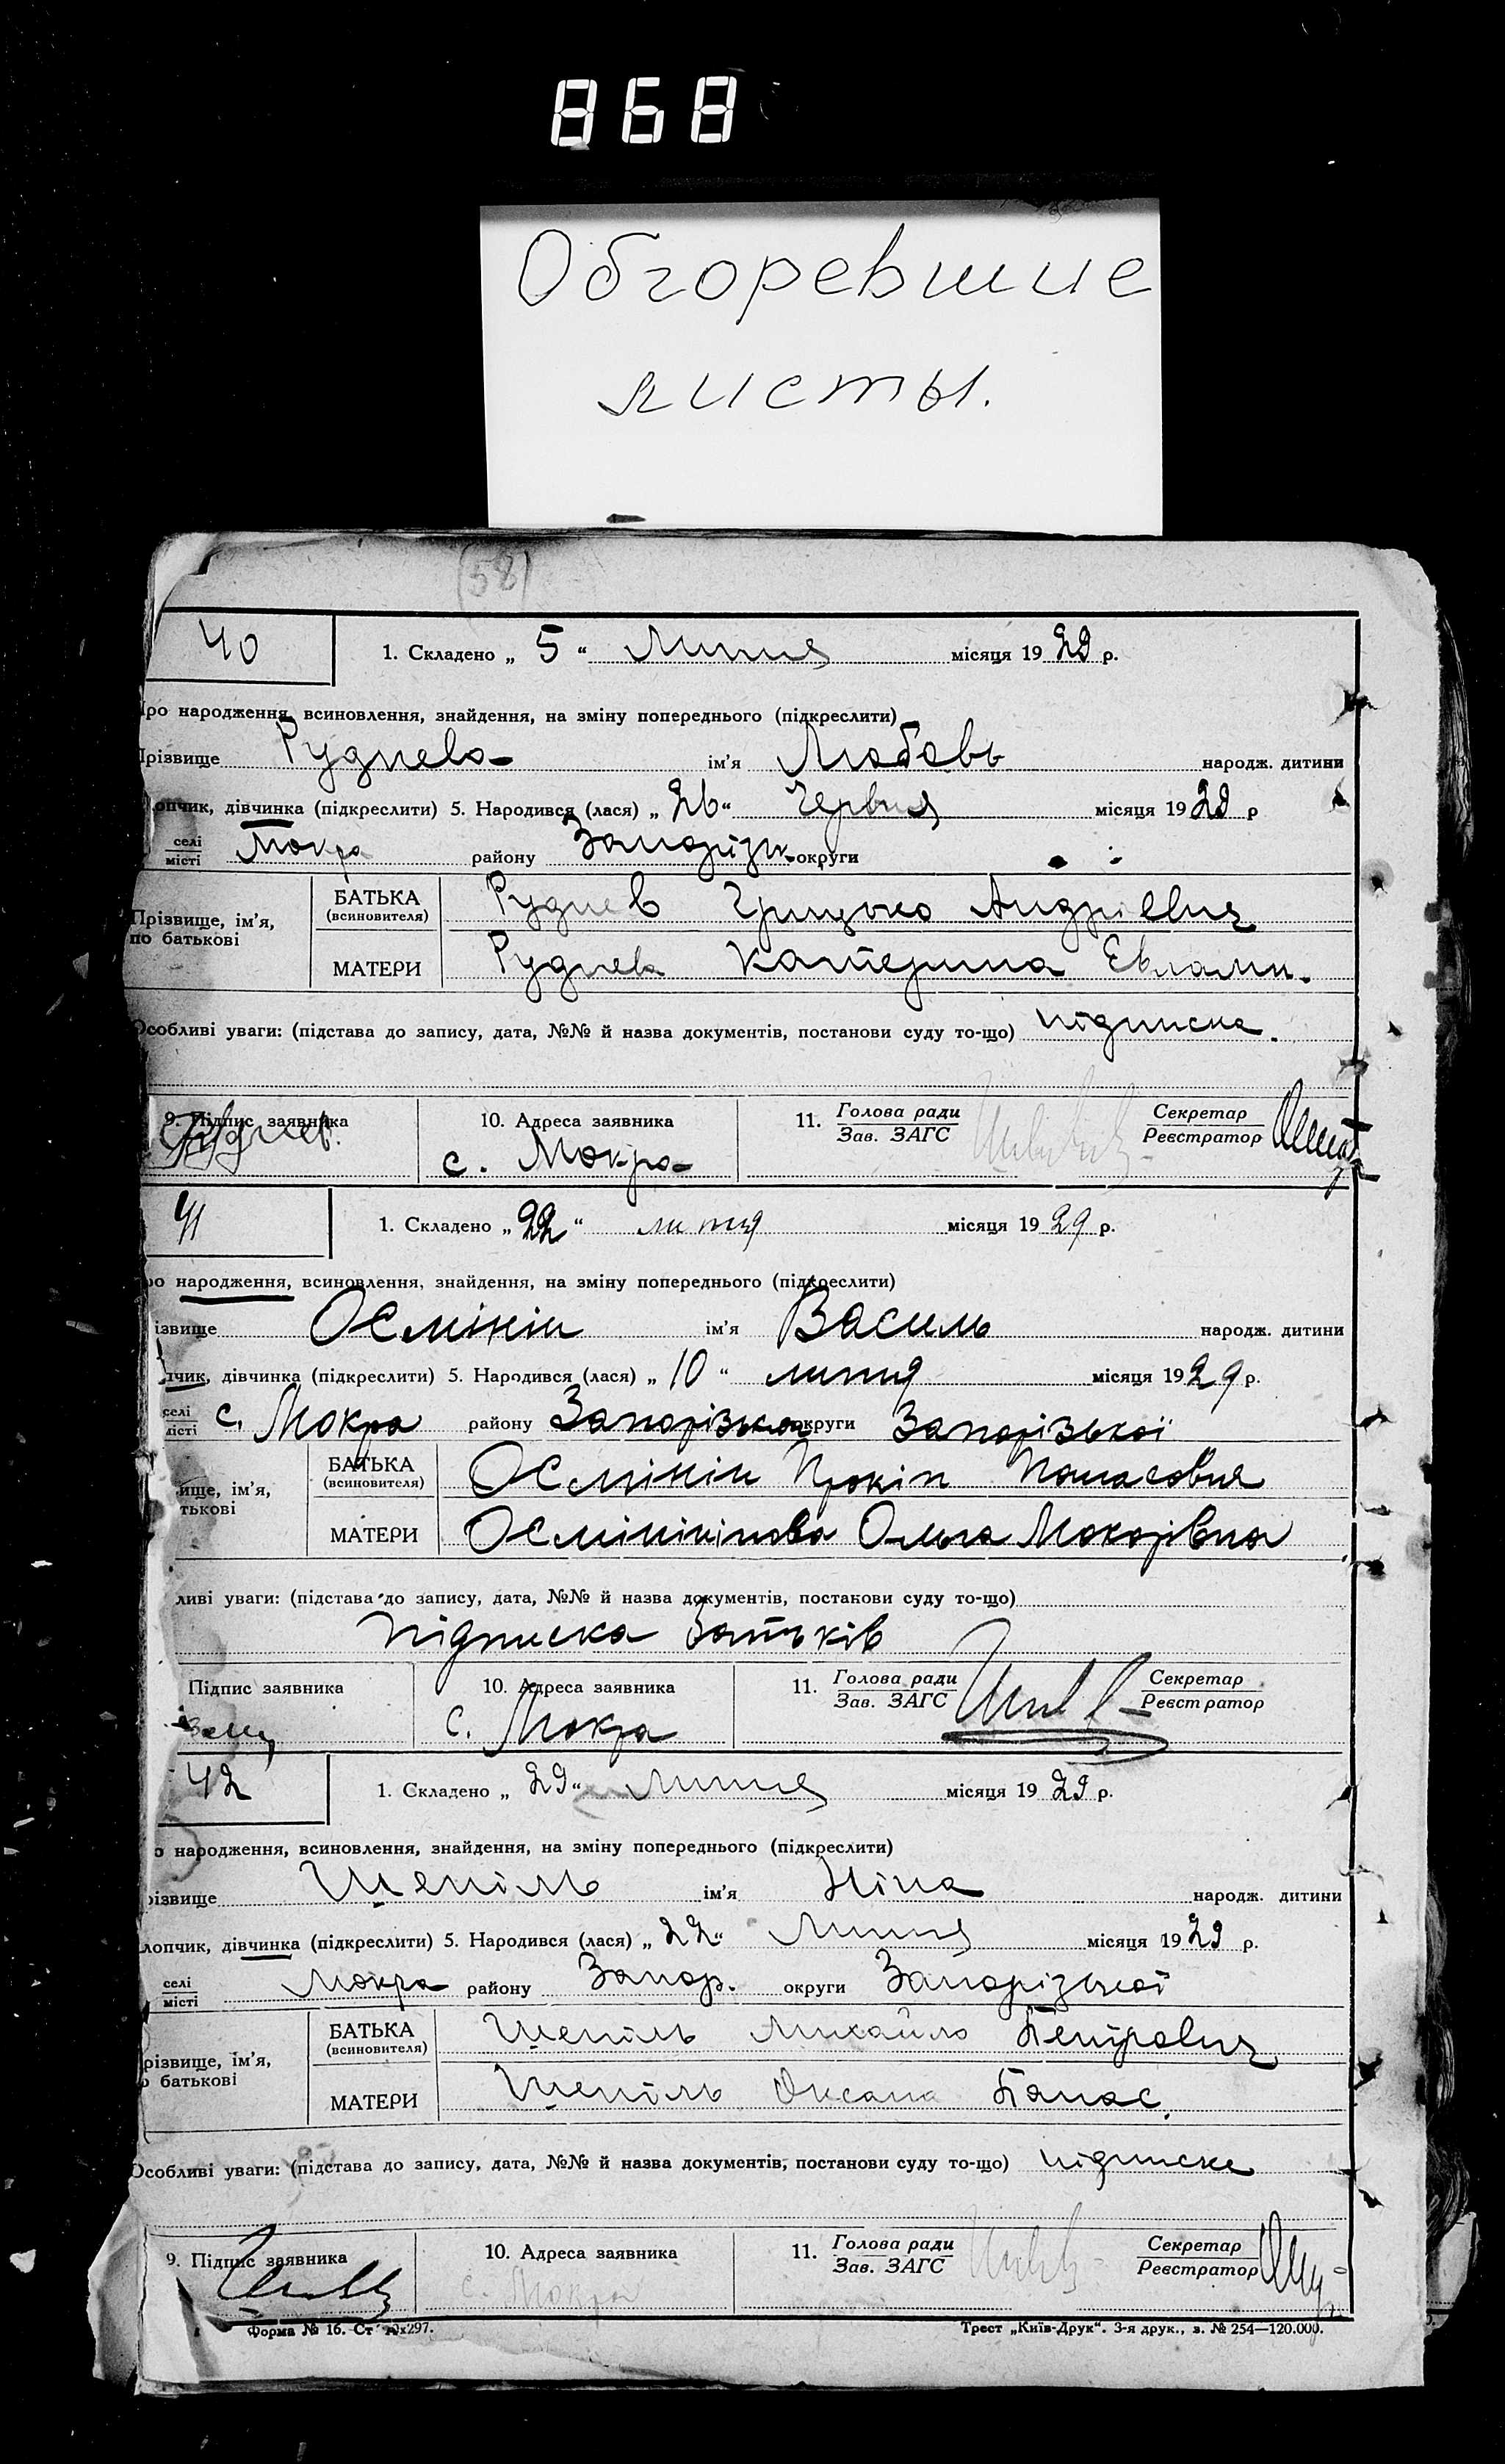 868
Обгоревшие
листы.
(58)
40
1. Складено „ 5 “ Липня місяця 19 29 р.
про народження, всиновлення, знайдення, на зміну попереднього (підкреслити)
Прізвище Руднева ім’я Любовь народж. дитини
опчик, дівчинка (підкреслити) 5. Народився (лася) „ 26 “ Червня місяця 19 29 р
селі
місті Мокра району Запорізьк. округи
Прізвище, ім’я, по батькові БАТЬКА (всиновителя) Руднев Грицько Андрієвич
МАТЕРИ Руднева Катерина Евламп.
Особливі уваги: (підстава до запису, дата, №№ й назва документів, постанови суду то-що) підписка.
9. Підпис заявника Руднев 10. Адреса заявника 11. Голова ради Секретар
с. Мокра Зав. ЗАГС Реєстратор
41
1. Складено „ 22 “ липня місяця 19 29 р.
ро народження, всиновлення, знайдення, на зміну попереднього (підкреслити)
ізвище Осмінін ім’я Василь народж. дитини
пчик, дівчинка (підкреслити) 5. Народився (лася) „ 10 “ липня місяця 19 29 р.
селі
місті с. Мокра району Запорізька округи Запорізької
ище, ім’я, тькові БАТЬКА (всиновителя) Осмінін Прокіп Панасович
МАТЕРИ Ольга Макарівна
ливі уваги: (підстава до запису, дата, №№ й назва документів, постанови суду то-що)
підписка батьків
Підпис заявника 10. Адреса заявника 11. Голова ради Секретар
с. Мокра Зав. ЗАГС Реєстратор
42
1. Складено „ 29 “ Липня місяця 19 29 р.
о народження, всиновлення, знайдення, на зміну попереднього (підкреслити)
різвище Щепіль ім’я Ніна народж. дитини
лопчик, дівчинка (підкреслити) 5. Народився (лася) „ 22 “ Липня місяця 19 29 р.
селі
місті Мокра району Запор. округи Запорізької
різвище, ім’я, о батькові БАТЬКА (всиновителя) Щепіль Михайло Петрович
МАТЕРИ Щепіль Оксана Панас.
Особливі уваги: (підстава до запису, дата, №№ й назва документів, постанови суду то-що) підписка
9. Підпис заявника 10. Адреса заявника 11. Голова ради Секретар
с. Мокра Зав. ЗАГС Реєстратор
Форма № 16. Ст х297. Трест „Київ-Друк“. 3-я друк., з. № 254—120.000.